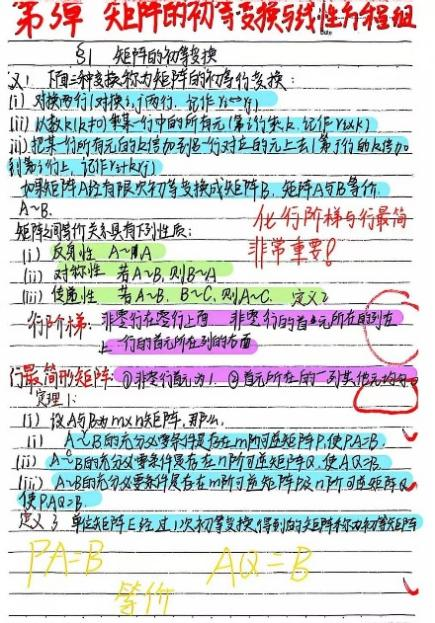 第3章 矩阵的初等变换与线性方程组
§1 矩阵的初等变换
义1 下面三种变换称为矩阵的初等行变换:
(i) 对换两行(对换i,j两行, 记作ri↔rj)
(ii) 以数k(k≠0)乘某一行中的所有元(第i行乘k, 记作ri×k)
(iii) 把某一行所有元的k倍加到另一行对应的元上去(第j行的k倍加
到第i行上, 记作ri+krj)
如果矩阵A经有限次初等变换成矩阵B, 矩阵A与B等价,
A~B.
化行阶梯与行最简
非常重要!
矩阵之间等价关系具有下列性质:
(i) 反身性 A~A
(ii) 对称性 若A~B, 则B~A
(iii) 传递性 若A~B, B~C, 则A~C. 定义2
行阶梯: 非零行在零行上面 非零行的首元所在的列在
上一行的首元所在列的右面
行最简形矩阵: ①非零行首元为1. ②首元所在的一列其他元均为0
定理1:
(i) 设A与B为m×n矩阵, 那么,
(i) A~B的充分必要条件是存在m阶可逆矩阵P, 使PA=B.
(ii) A~B的充分必要条件是存在n阶可逆矩阵Q, 使AQ=B.
(iii) A~B的充分必要条件是存在m阶可逆矩阵P及n阶可逆矩阵Q
使PAQ=B.
定义3 单位矩阵E经过1次初等变换得到的矩阵称为初等矩阵
PA=B AQ=B
等价